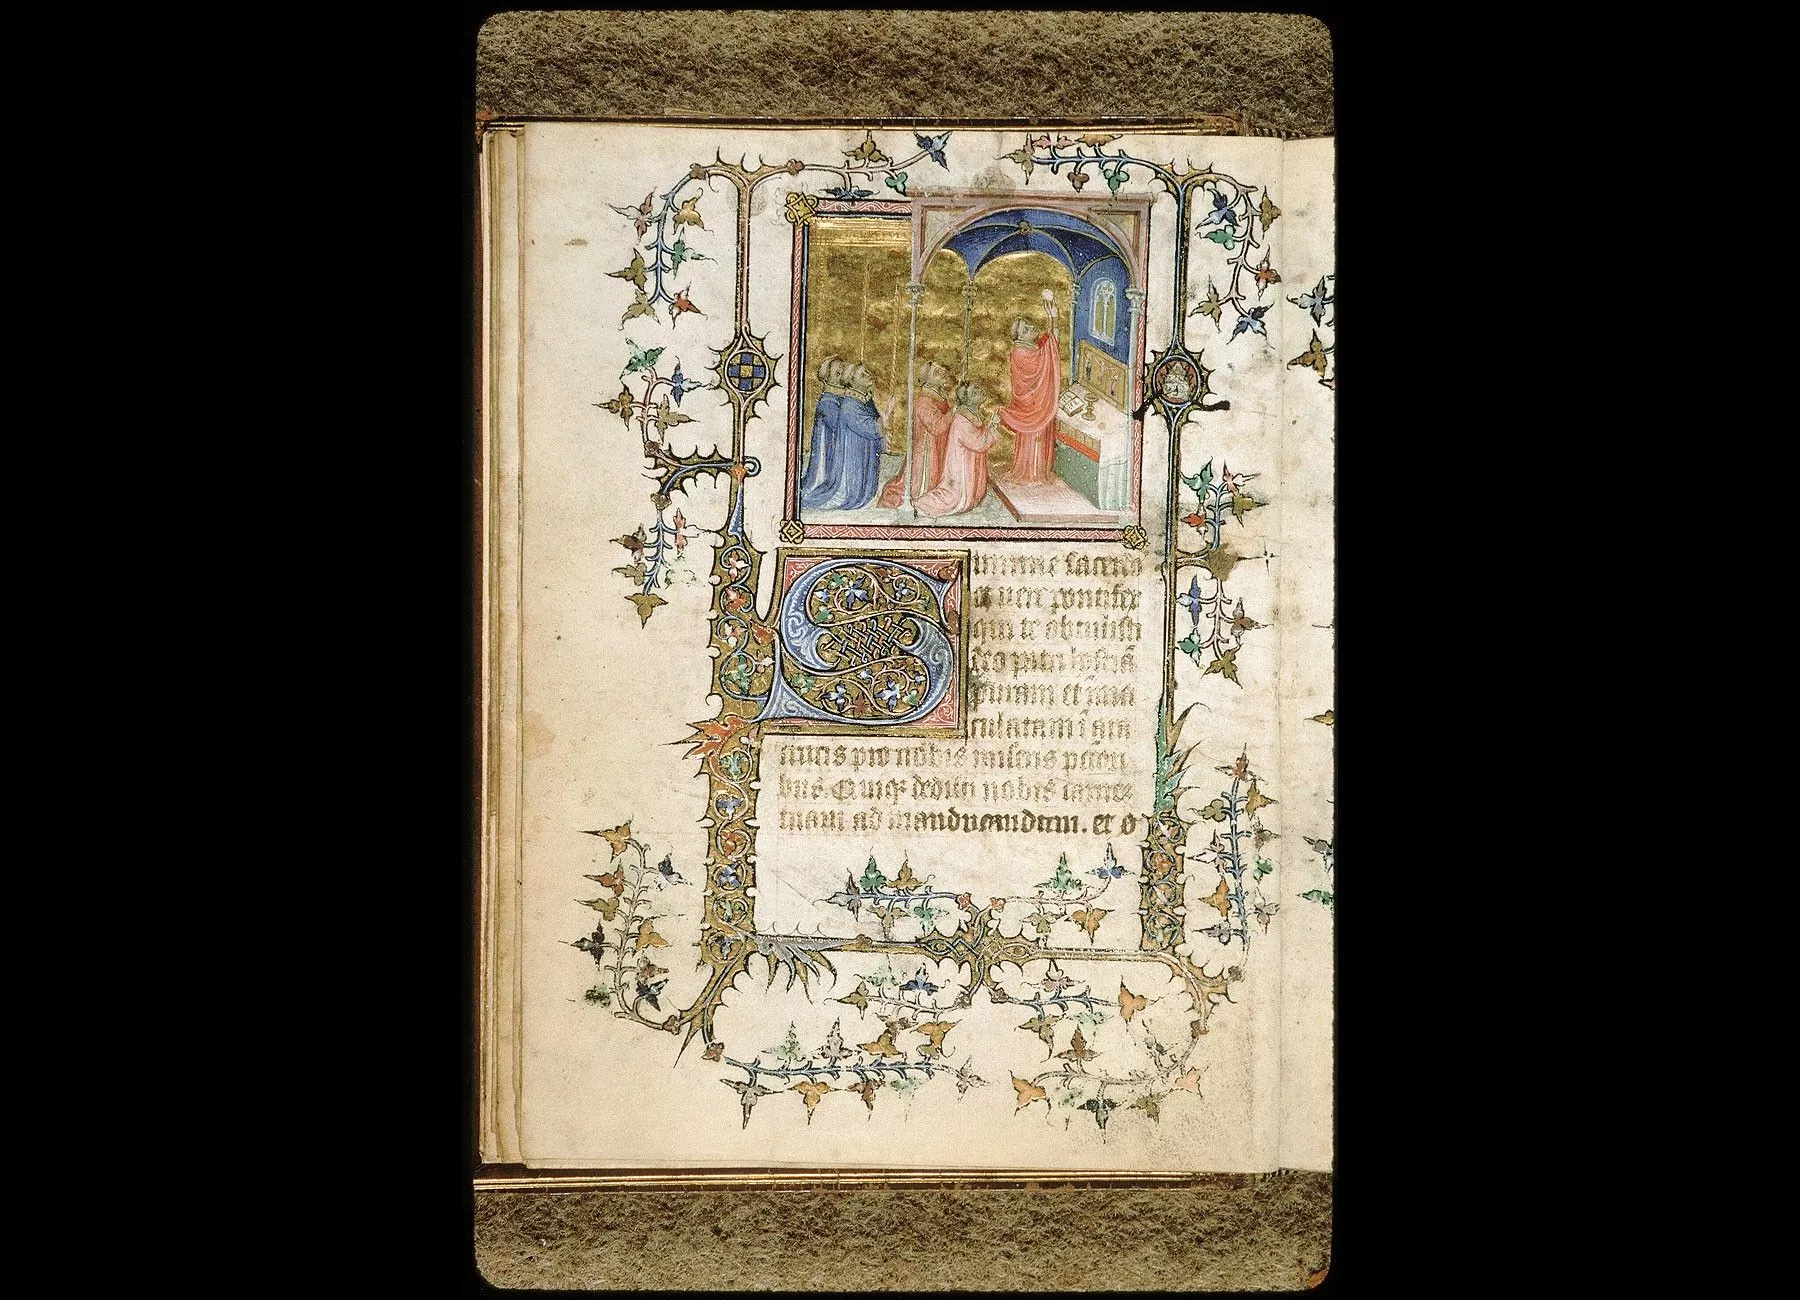 Summe sacerdos
et vere pontifex
qui te obtulisti
deo patri hostiā
puram et īma
culatam ī ara
crucis pro nobis miseris pctori
bus. Quiqꝫ dedisti nobis carnē
tuam ad manducandum. et o